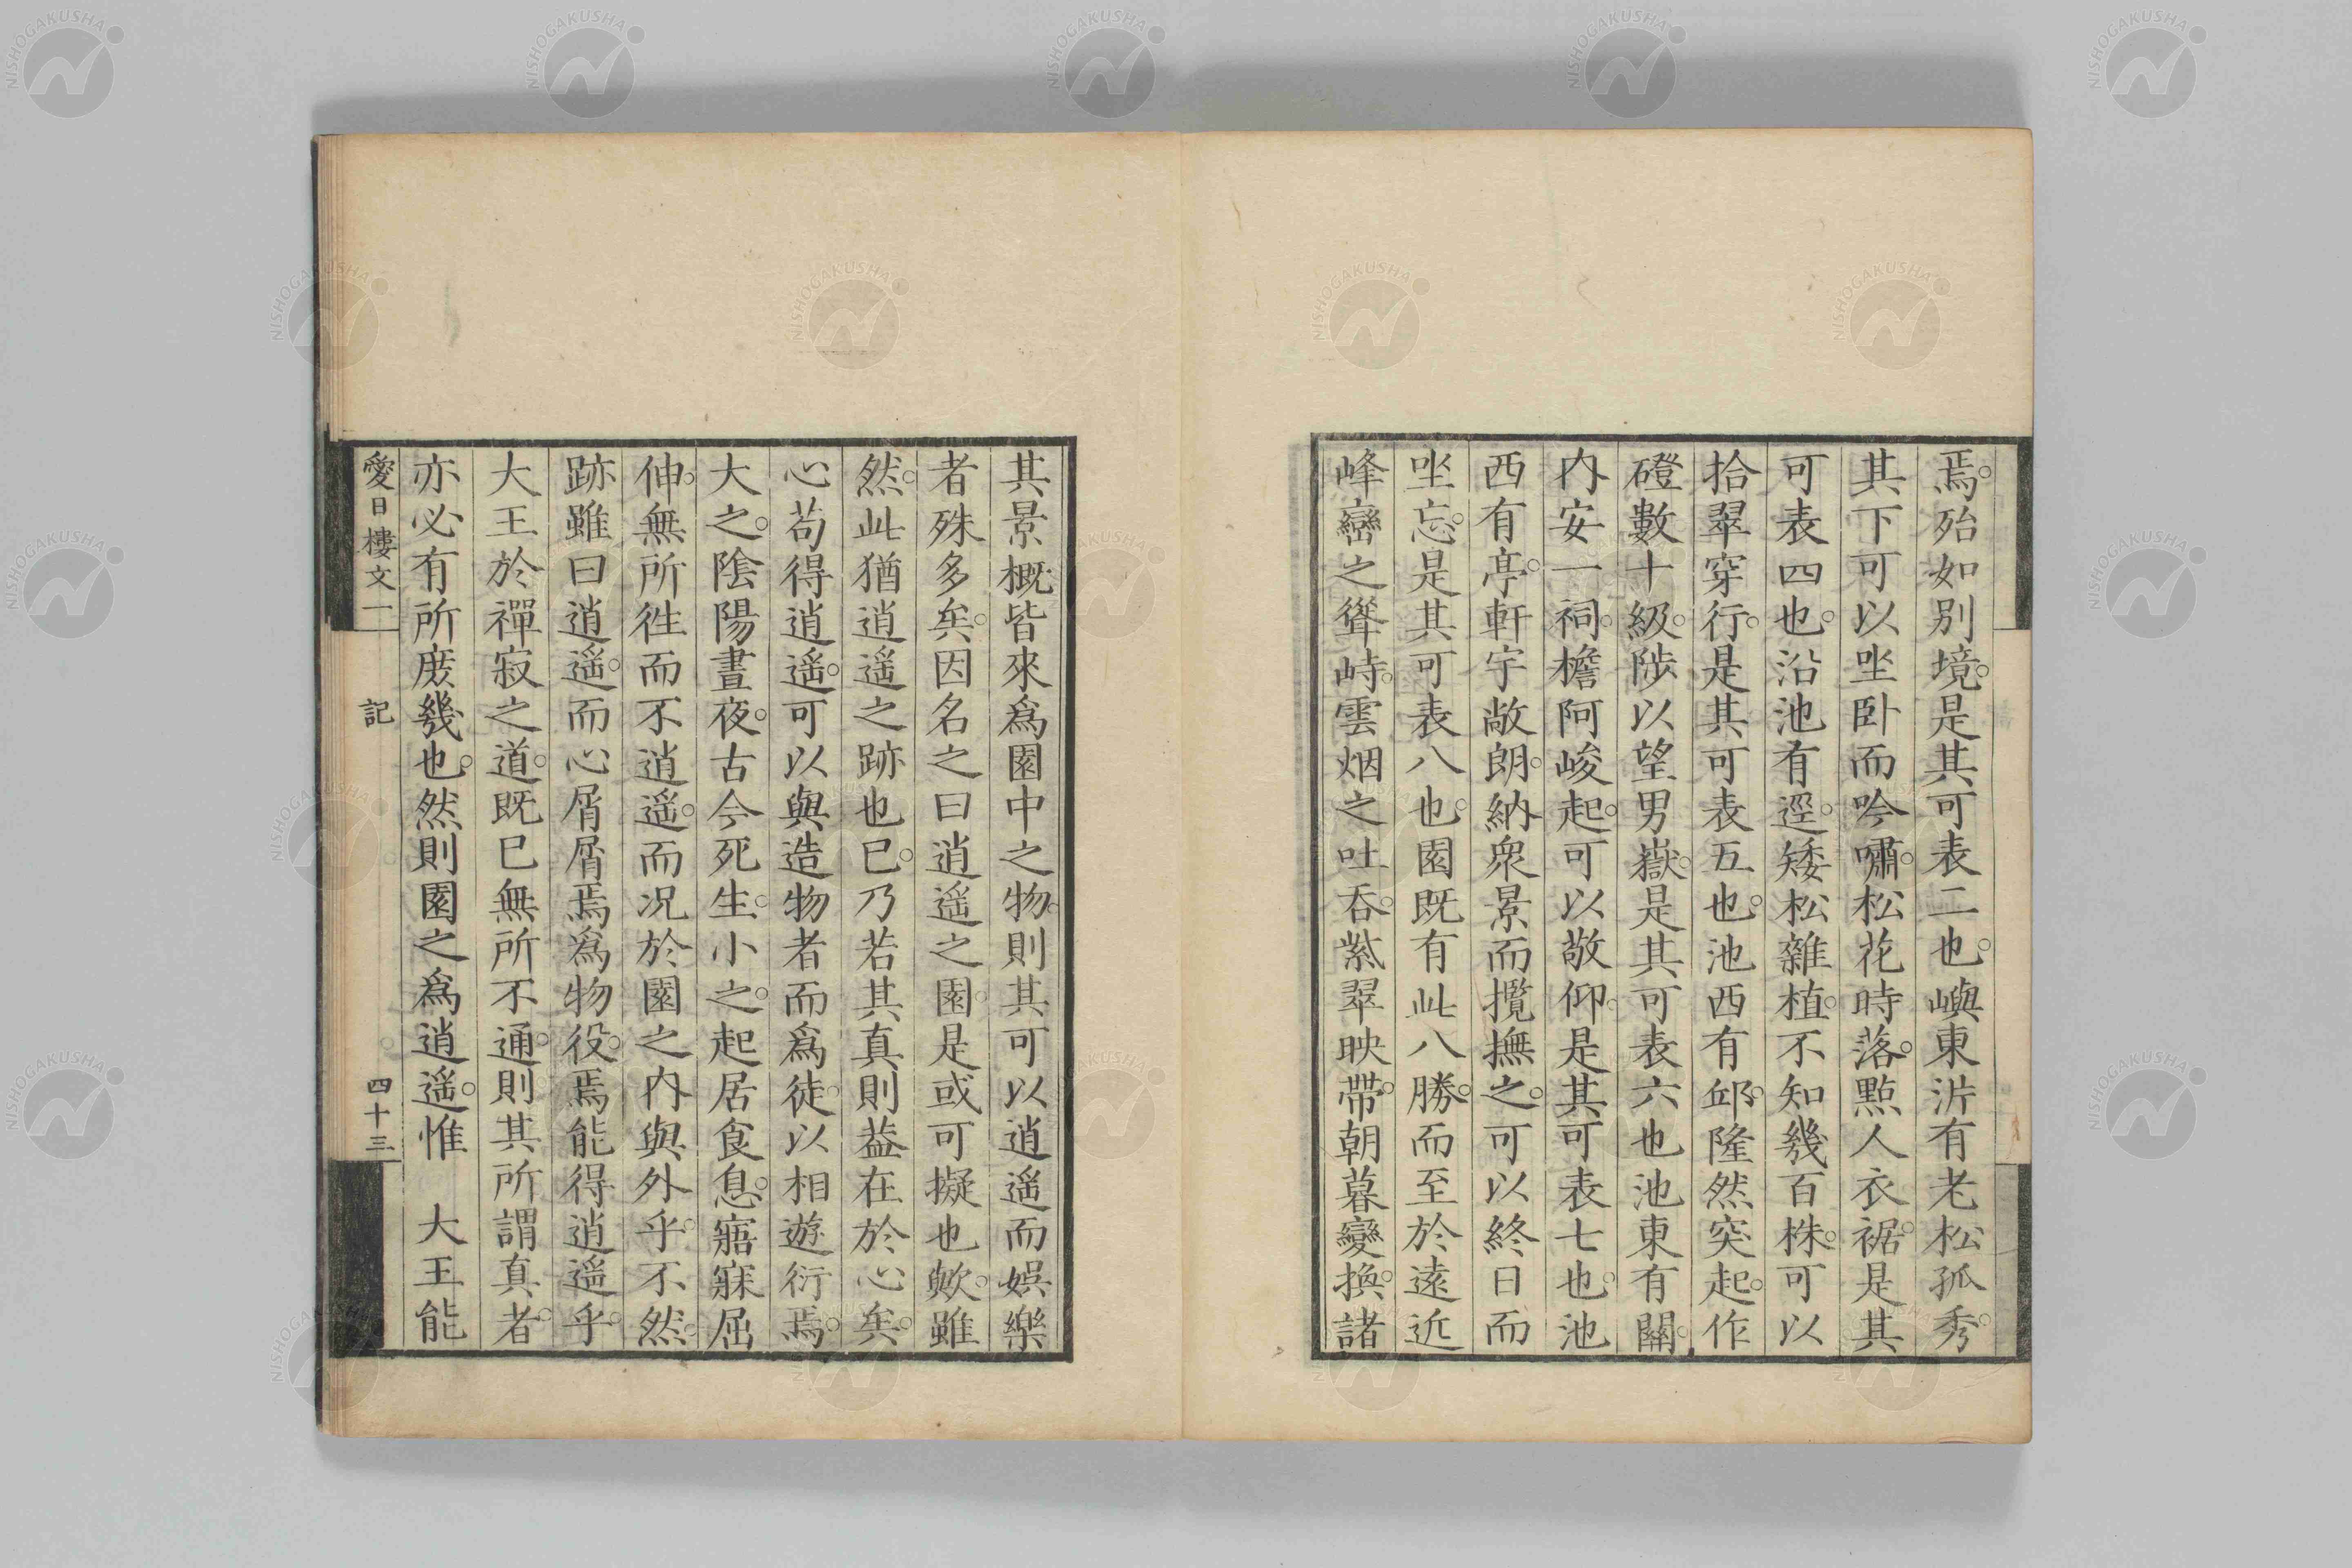 焉。殆如別境。是其可表二也。嶼東泝有老松孤秀。
其下可以坐臥而吟嘯。松花時落。點人衣裾。是其
可表四也。沿池有逕。矮松雜植。不知幾百株。可以
拾翠穿行。是其可表五也。池西有邱。隆然突起。作
磴數十級。陟以望男嶽。是其可表六也池東有關。
內安一祠。檐阿峻起。可以敬仰。是其可表七也。池
西有亭。軒宇敞朗。納衆景而攬撫之。可以終日而
坐忘。是其可表八也。園既有此八勝。而至於遠近
峰巒之聳峙。雲烟之吐吞。紫翠映帶。朝暮變換。諸
其景概皆來爲園中之物。則其可以逍遙而娛樂
者殊多矣。因名之曰逍遙之園。是或可擬也歟。雖
然。此猶逍遙之跡也已。乃若其真則葢在於心矣。
心苟得逍遙。可以與造物者而爲徒。以相遊衍焉。
大之。陰陽晝夜。古今死生。小之。起居食息。寤寐屈
伸。無所往而不逍遙。而况於園之內與外乎。不然。
跡雖曰逍遙。而心屑屑焉爲物役。焉能得逍遙乎。
大王於禪寂之道。既已無所不通。則其所謂真者。
亦必有所庶幾也。然則園之爲逍遙。惟 大王能
愛日樓文一 記 四十三
NISHOGAKUSHA